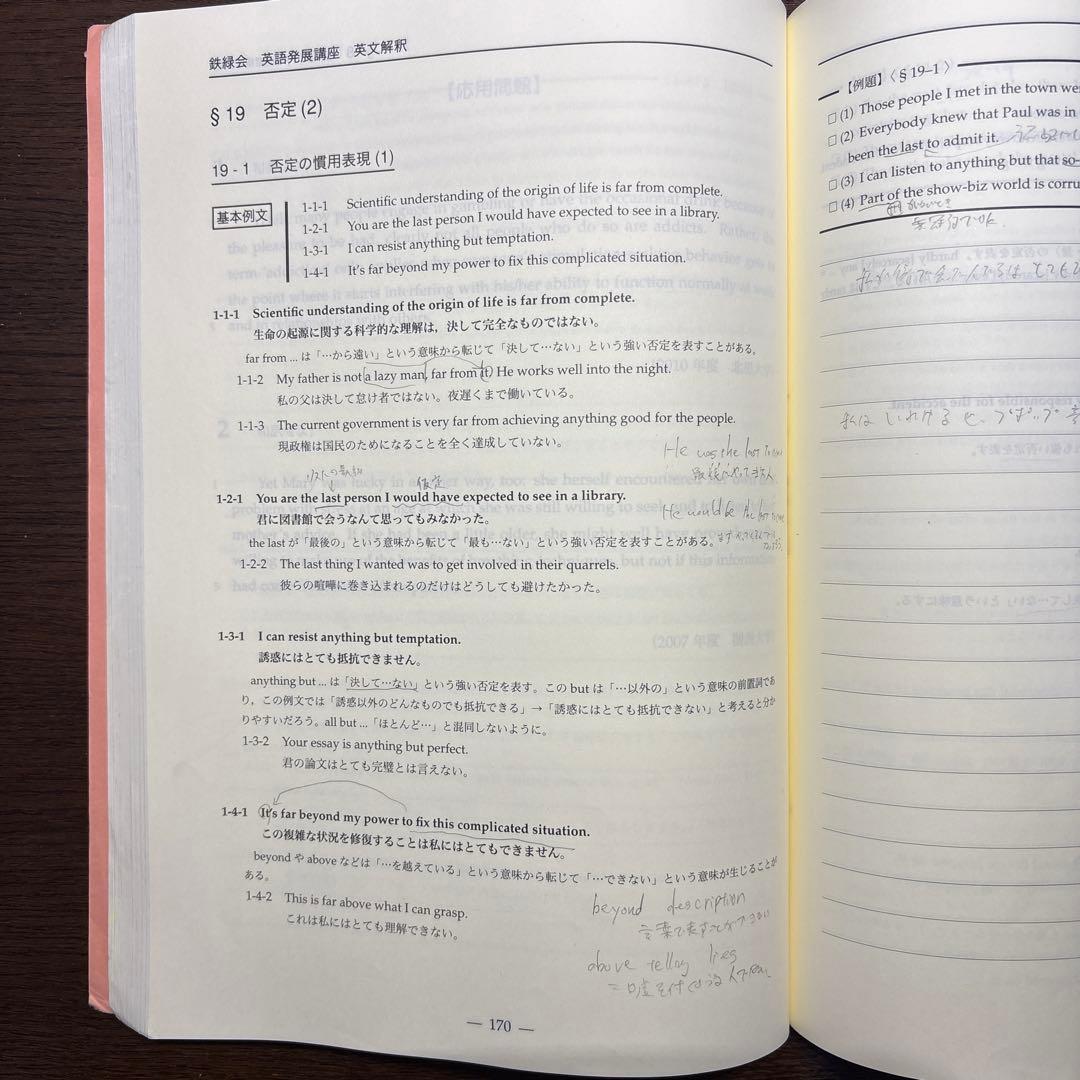 鉄緑会 英語発展講座 英文解釈
§ 19 否定 (2)
19 - 1 否定の慣用表現 (1)
基本例文
1-1-1 Scientific understanding of the origin of life is far from complete.
1-2-1 You are the last person I would have expected to see in a library.
1-3-1 I can resist anything but temptation.
1-4-1 It's far beyond my power to fix this complicated situation.
1-1-1 Scientific understanding of the origin of life is far from complete.
生命の起源に関する科学的な理解は，決して完全なものではない。
far from ... は「…から遠い」という意味から転じて「決して…ない」という強い否定を表すことがある。
1-1-2 My father is not a lazy man, far from it. He works well into the night.
私の父は決して怠け者ではない。夜遅くまで働いている。
1-1-3 The current government is very far from achieving anything good for the people.
現政権は国民のためになることを全く達成していない。
He was the last to come
仮定
1-2-1 You are the last person I would have expected to see in a library.
君に図書館で会うなんて思ってもみなかった。
He would be the last to come
the last が「最後の」という意味から転じて「最も…ない」という強い否定を表すことがある。
1-2-2 The last thing I wanted was to get involved in their quarrels.
彼らの喧嘩に巻き込まれるのだけはどうしても避けたかった。
1-3-1 I can resist anything but temptation.
誘惑にはとても抵抗できません。
anything but ... は「決して…ない」という強い否定を表す。この but は「…以外の」という意味の前置詞であ
り，この例文では「誘惑以外のどんなものでも抵抗できる」→「誘惑にはとても抵抗できない」と考えると分か
りやすいだろう。all but ...「ほとんど…」と混同しないように。
1-3-2 Your essay is anything but perfect.
君の論文はとても完璧とは言えない。
1-4-1 It's far beyond my power to fix this complicated situation.
この複雑な状況を修復することは私にはとてもできません。
beyond や above などは「…を越えている」という意味から転じて「…できない」という意味が生じることが
ある。
1-4-2 This is far above what I can grasp.
これは私にはとても理解できない。
beyond description
言葉で表すことができない
above telling lies
— 170 —
【例題】〈 § 19–1 〉
□ (1) Those people I met in the town we
□ (2) Everybody knew that Paul was in
been the last to admit it.
□ (3) I can listen to anything but that so-
□ (4) Part of the show-biz world is corru